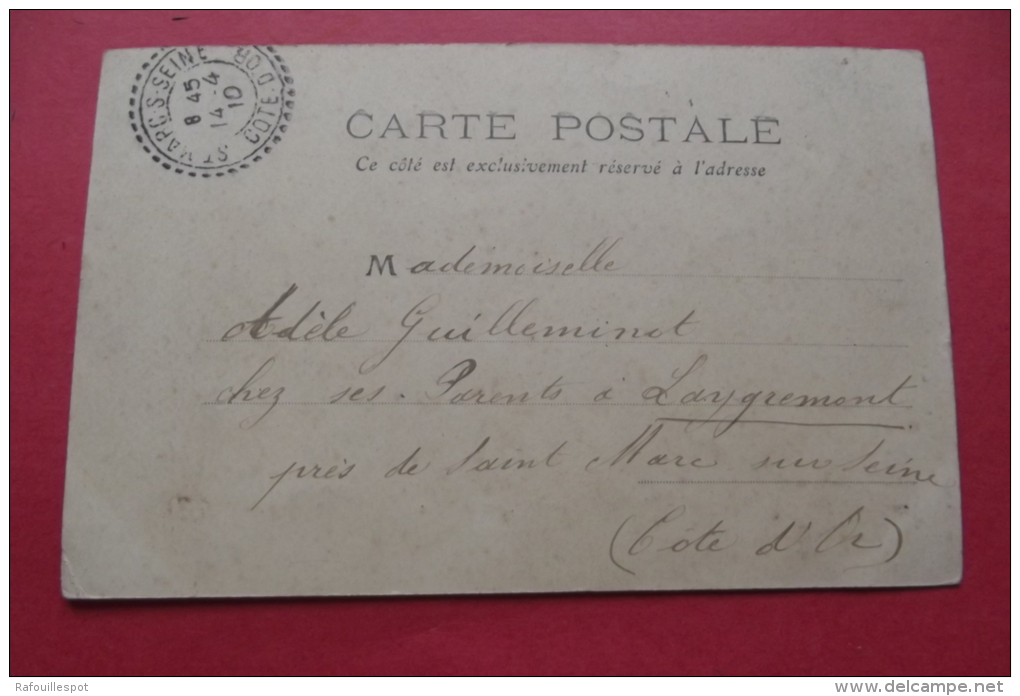 ST MARC-S-SEINE
COTE-D'OR
8 45
14 -4
10
CARTE POSTALE
Ce côté est exclusivement réservé à l'adresse
Mademoiselle
Adèle Guilleminot
chez ses Parents à Laygremont
près de Saint Marc sur Seine
(Côte d'Or)
Rafouillespot
www.delcampe.net